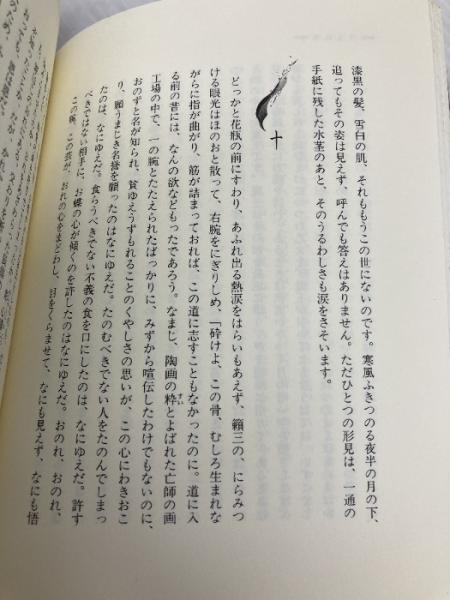 漆黒の髪、雪白の肌、それももうこの世にないのです。寒風ふきつのる夜半の月の下、
追ってもその姿は見えず、呼んでも答えはありません。ただひとつの形見は、一通の
手紙に残した水茎のあと、そのうるわしさも涙をさそいます。
十
どっかと花瓶の前にすわり、あふれ出る熱涙をはらいもあえず、籟三の、にらみつ
ける眼光はほのおと散って、右腕をにぎりしめ、「砕けよ、この骨、むしろ生まれな
がらに指が曲がり、筋が詰まっておれば、この道に志すこともなかったのに。道に入
る前の昔には、なんの欲などもったであろう。なまじ、陶画の粋とよばれた亡師の画
すい
工場の中で、一の腕とたたえられたばっかりに、みずから喧伝したわけでもないのに、
おのずと名が知られ、貧ゆえうずもれることのくやしさの思いが、この心にわきおこ
り、願うまじき名誉を願ったのはなにゆえだ。たのむべきでない人をたのんでしまっ
たのは、なにゆえだ。食らうべきでない不義の食を口にしたのは、なにゆえだ。許す
べきではない相手に、お蝶の心が傾くのを許したのはなにゆえだ。おのれ、おのれ、
この腕、この芸が、おれの心をまどわし、目をくらませて、なにも見えず、なにも悟